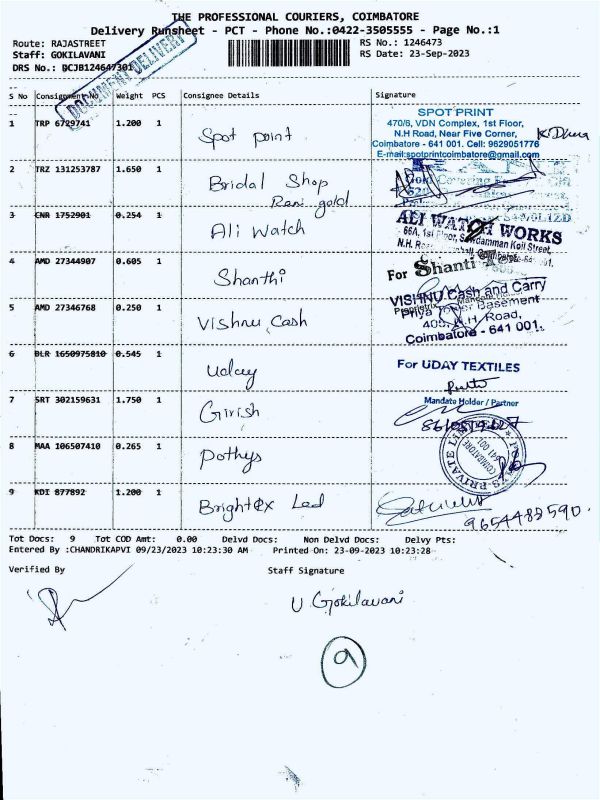 THE PROFESSIONAL COURIERS, COIMBATORE
Delivery Runsheet - PCT - Phone No.:0422-3505555 - Page No.:1
Route: RAJASTREET
RS No.: 1246473
Staff: GOKILAVANI
RS Date: 23-Sep-2023
DRS No.: DCJB124647301
DOCUMENT DELIVERY
S No Consignment No Weight PCS Consignee Details Signature
1 TRP 6729741 1.200 1 Spot point
SPOT PRINT
470/6, VDN Complex, 1st Floor,
N.H Road, Near Five Corner,
Coimbatore - 641 001. Cell: 9629051776
E-mail:spotprintcoimbatore@gmail.com
2 TRZ 131253787 1.650 1 Bridal Shop
Rani gold
3 CNR 1752901 0.254 1 Ali Watch
ALI WATCH WORKS
66A, 1st Floor,
4 AMD 27344907 0.605 1 Shanthi
For Shanti
5 AMD 27346768 0.250 1 Vishnu Cash
VISHNU Cash and Carry
Priya Tower Basement
405, N.H. Road,
Coimbatore - 641 001.
6 BLR 1650975810 0.545 1 Uday
For UDAY TEXTILES
7 SRT 302159631 1.750 1 Girish
Mandate Holder / Partner
8 MAA 106507410 0.265 1 Pothys
PRIVATE
COIMBATORE
641 001
9 KDI 877892 1.200 1 Brightex Led
9654483590.
Tot Docs: 9 Tot COD Amt: 0.00 Delvd Docs: Non Delvd Docs: Delvy Pts:
Entered By :CHANDRIKAPVI 09/23/2023 10:23:30 AM Printed On: 23-09-2023 10:23:28
Verified By Staff Signature
U Gokilavani
9